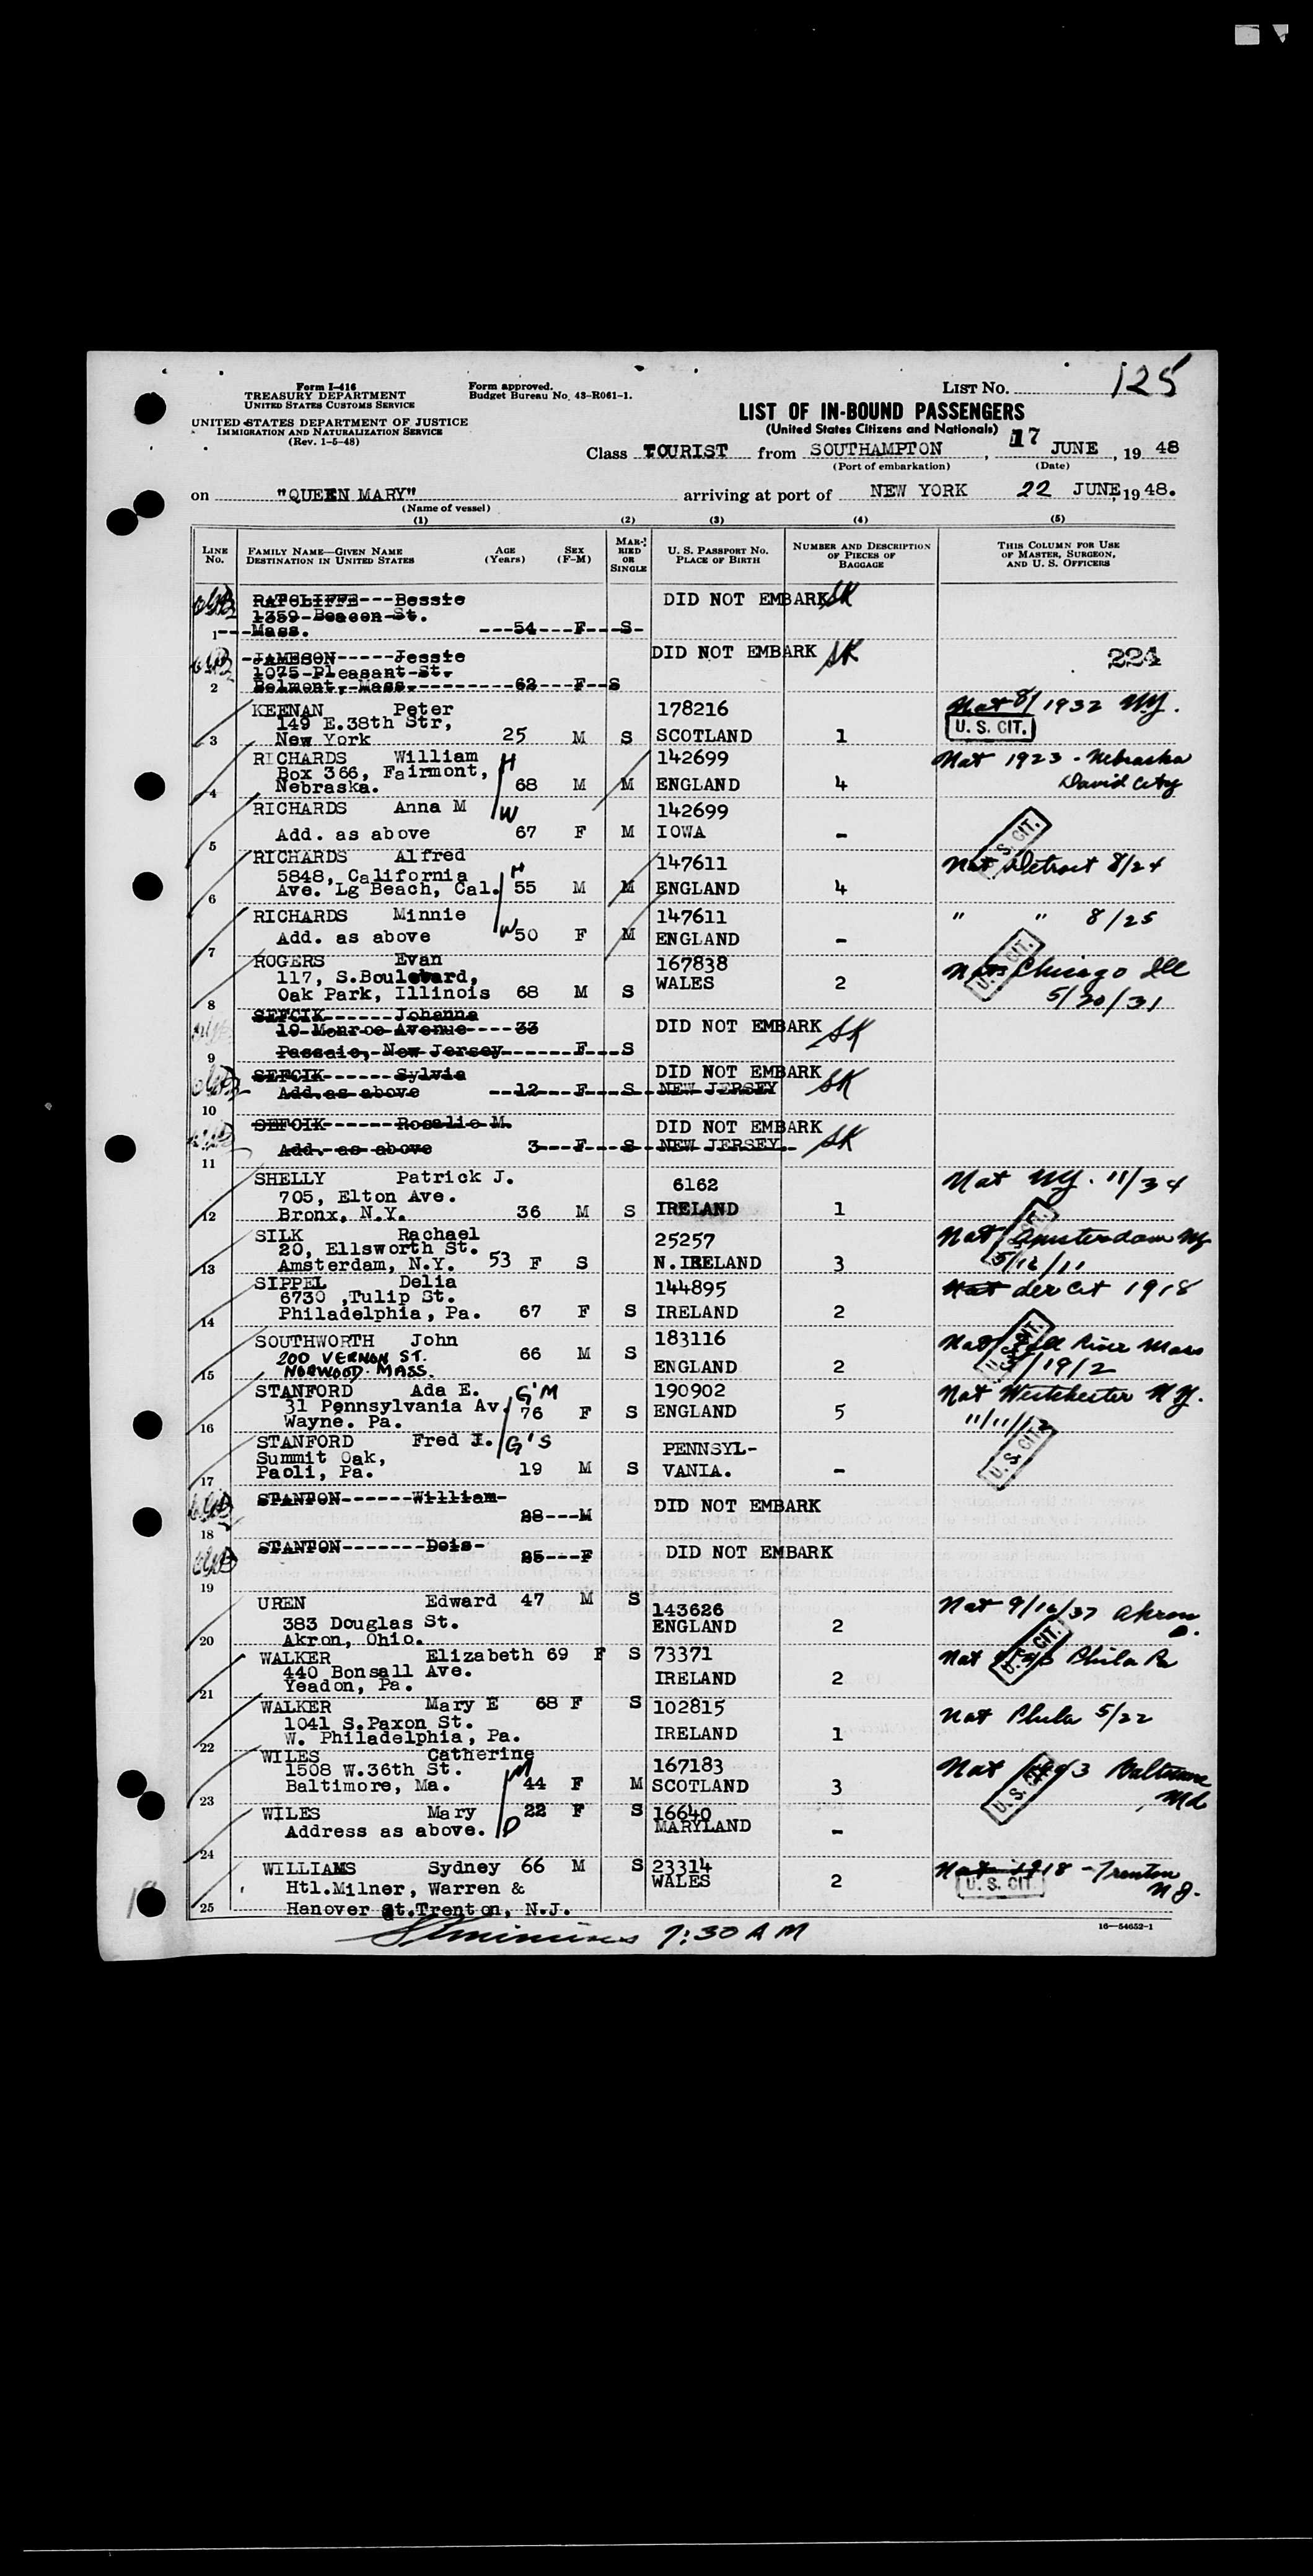 Form I-416
TREASURY DEPARTMENT
UNITED STATES CUSTOMS SERVICE
UNITED STATES DEPARTMENT OF JUSTICE
IMMIGRATION AND NATURALIZATION SERVICE
(Rev. 1-5-48)
Form approved.
Budget Bureau No. 43-R061-1.
LIST NO. 125
LIST OF IN-BOUND PASSENGERS
(United States Citizens and Nationals)
Class TOURIST from SOUTHAMPTON, 17 JUNE, 19 48
(Port of embarkation) (Date)
on "QUEEN MARY" arriving at port of NEW YORK 22 JUNE, 19 48.
(Name of vessel)
(1) (2) (3) (4) (5)
LINE NO.
FAMILY NAME—GIVEN NAME
DESTINATION IN UNITED STATES
AGE (Years)
SEX (F-M)
MARRIED OR SINGLE
U. S. PASSPORT NO.
PLACE OF BIRTH
NUMBER AND DESCRIPTION OF PIECES OF BAGGAGE
THIS COLUMN FOR USE OF MASTER, SURGEON, AND U. S. OFFICERS
RATCLIFFE---Bessie DID NOT EMBARK SK
1359-Beacon-St.
1 Mass. 54 F S
JAMESON-----Jessie DID NOT EMBARK SK 224
1075-Pleasant-St.
2 Belmont,-Mass. 62 F S
KEENAN Peter 178216 Nat 8/1932 NY.
149 E.38th Str, U. S. CIT.
3 New York 25 M S SCOTLAND 1
RICHARDS William H 142699 Nat 1923 - Nebraska
Box 366, Fairmont, David City
4 Nebraska. 68 M M ENGLAND 4
RICHARDS Anna M W 142699
5 Add. as above 67 F M IOWA - U. S. CIT.
RICHARDS Alfred H 147611 Nat Detroit 8/24
5848, California
6 Ave. Lg Beach, Cal. 55 M M ENGLAND 4
RICHARDS Minnie 147611 " " 8/25
7 Add. as above W 50 F M ENGLAND -
ROGERS Evan 167838 Nat Chicago Ill
117, S.Boulevard, WALES 2 U. S. CIT.
8 Oak Park, Illinois 68 M S 5/20/31
SEFCIK------Johanna
19-Monroe-Avenue----33 DID NOT EMBARK SK
9 Passaic,-New Jersey F S
SEFCIK------Sylvia DID NOT EMBARK SK
10 Add.as above 12 F S NEW JERSEY
SEFCIK------Rosalie M. DID NOT EMBARK SK
11 Add.-as-above 3 F S NEW JERSEY
SHELLY Patrick J. 6162 Nat NY. 11/34
705, Elton Ave.
12 Bronx, N.Y. 36 M S IRELAND 1
SILK Rachael 25257 Nat Amsterdam NY
20, Ellsworth St.
13 Amsterdam, N.Y. 53 F S N.IRELAND 3 5/16/11
SIPPEL Delia 144895 Nat der cit 1918
6730 ,Tulip St.
14 Philadelphia, Pa. 67 F S IRELAND 2
SOUTHWORTH John 183116 Nat Fall River Mass
200 VERNON ST. 66 M S U. S. CIT.
15 NORWOOD. MASS. ENGLAND 2
STANFORD Ada E. G'M 190902 Nat Westchester N.Y.
31 Pennsylvania Av. 76 F S ENGLAND 5
16 Wayne. Pa. 11/11/12
STANFORD Fred I. G'S PENNSYL-
Summit Oak, U. S. CIT.
17 Paoli, Pa. 19 M S VANIA. -
STANTON------William- DID NOT EMBARK
18 28---M
STANTON-------Dois- DID NOT EMBARK
19 25---F
UREN Edward 47 M S 143626 Nat 9/16/37 Akron O.
383 Douglas St. ENGLAND 2
20 Akron, Ohio.
WALKER Elizabeth 69 F S 73371 Nat Phila Pa
440 Bonsall Ave. U. S. CIT.
21 Yeadon, Pa. IRELAND 2
WALKER Mary E 68 F S 102815 Nat Phila 5/22
1041 S.Paxon St.
22 W. Philadelphia, Pa. IRELAND 1
WILES Catherine 167183 Nat Baltimore Md
1508 W.36th St. M
23 Baltimore, Ma. 44 F M SCOTLAND 3 U. S. CIT.
WILES Mary 22 F S 16640
24 Address as above. D MARYLAND -
WILLIAMS Sydney 66 M S 23314 Nat 1918 - Trenton N J.
Htl.Milner, Warren & WALES 2 U. S. CIT.
25 Hanover St.Trenton, N.J.
7:30 AM
16—54652-1